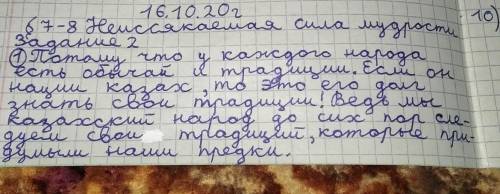 16.10.20г
§ 7-8 Неиссякаемая сила мудрости 10)
Задание 2
① Потому что у каждого народа
есть обычай и традиции. Если он
нации казах, то это его долг
знать свои традиции! Ведь мы
казахский народ до сих пор сле-
дуем свои традиций, которые при-
думыли наши предки.